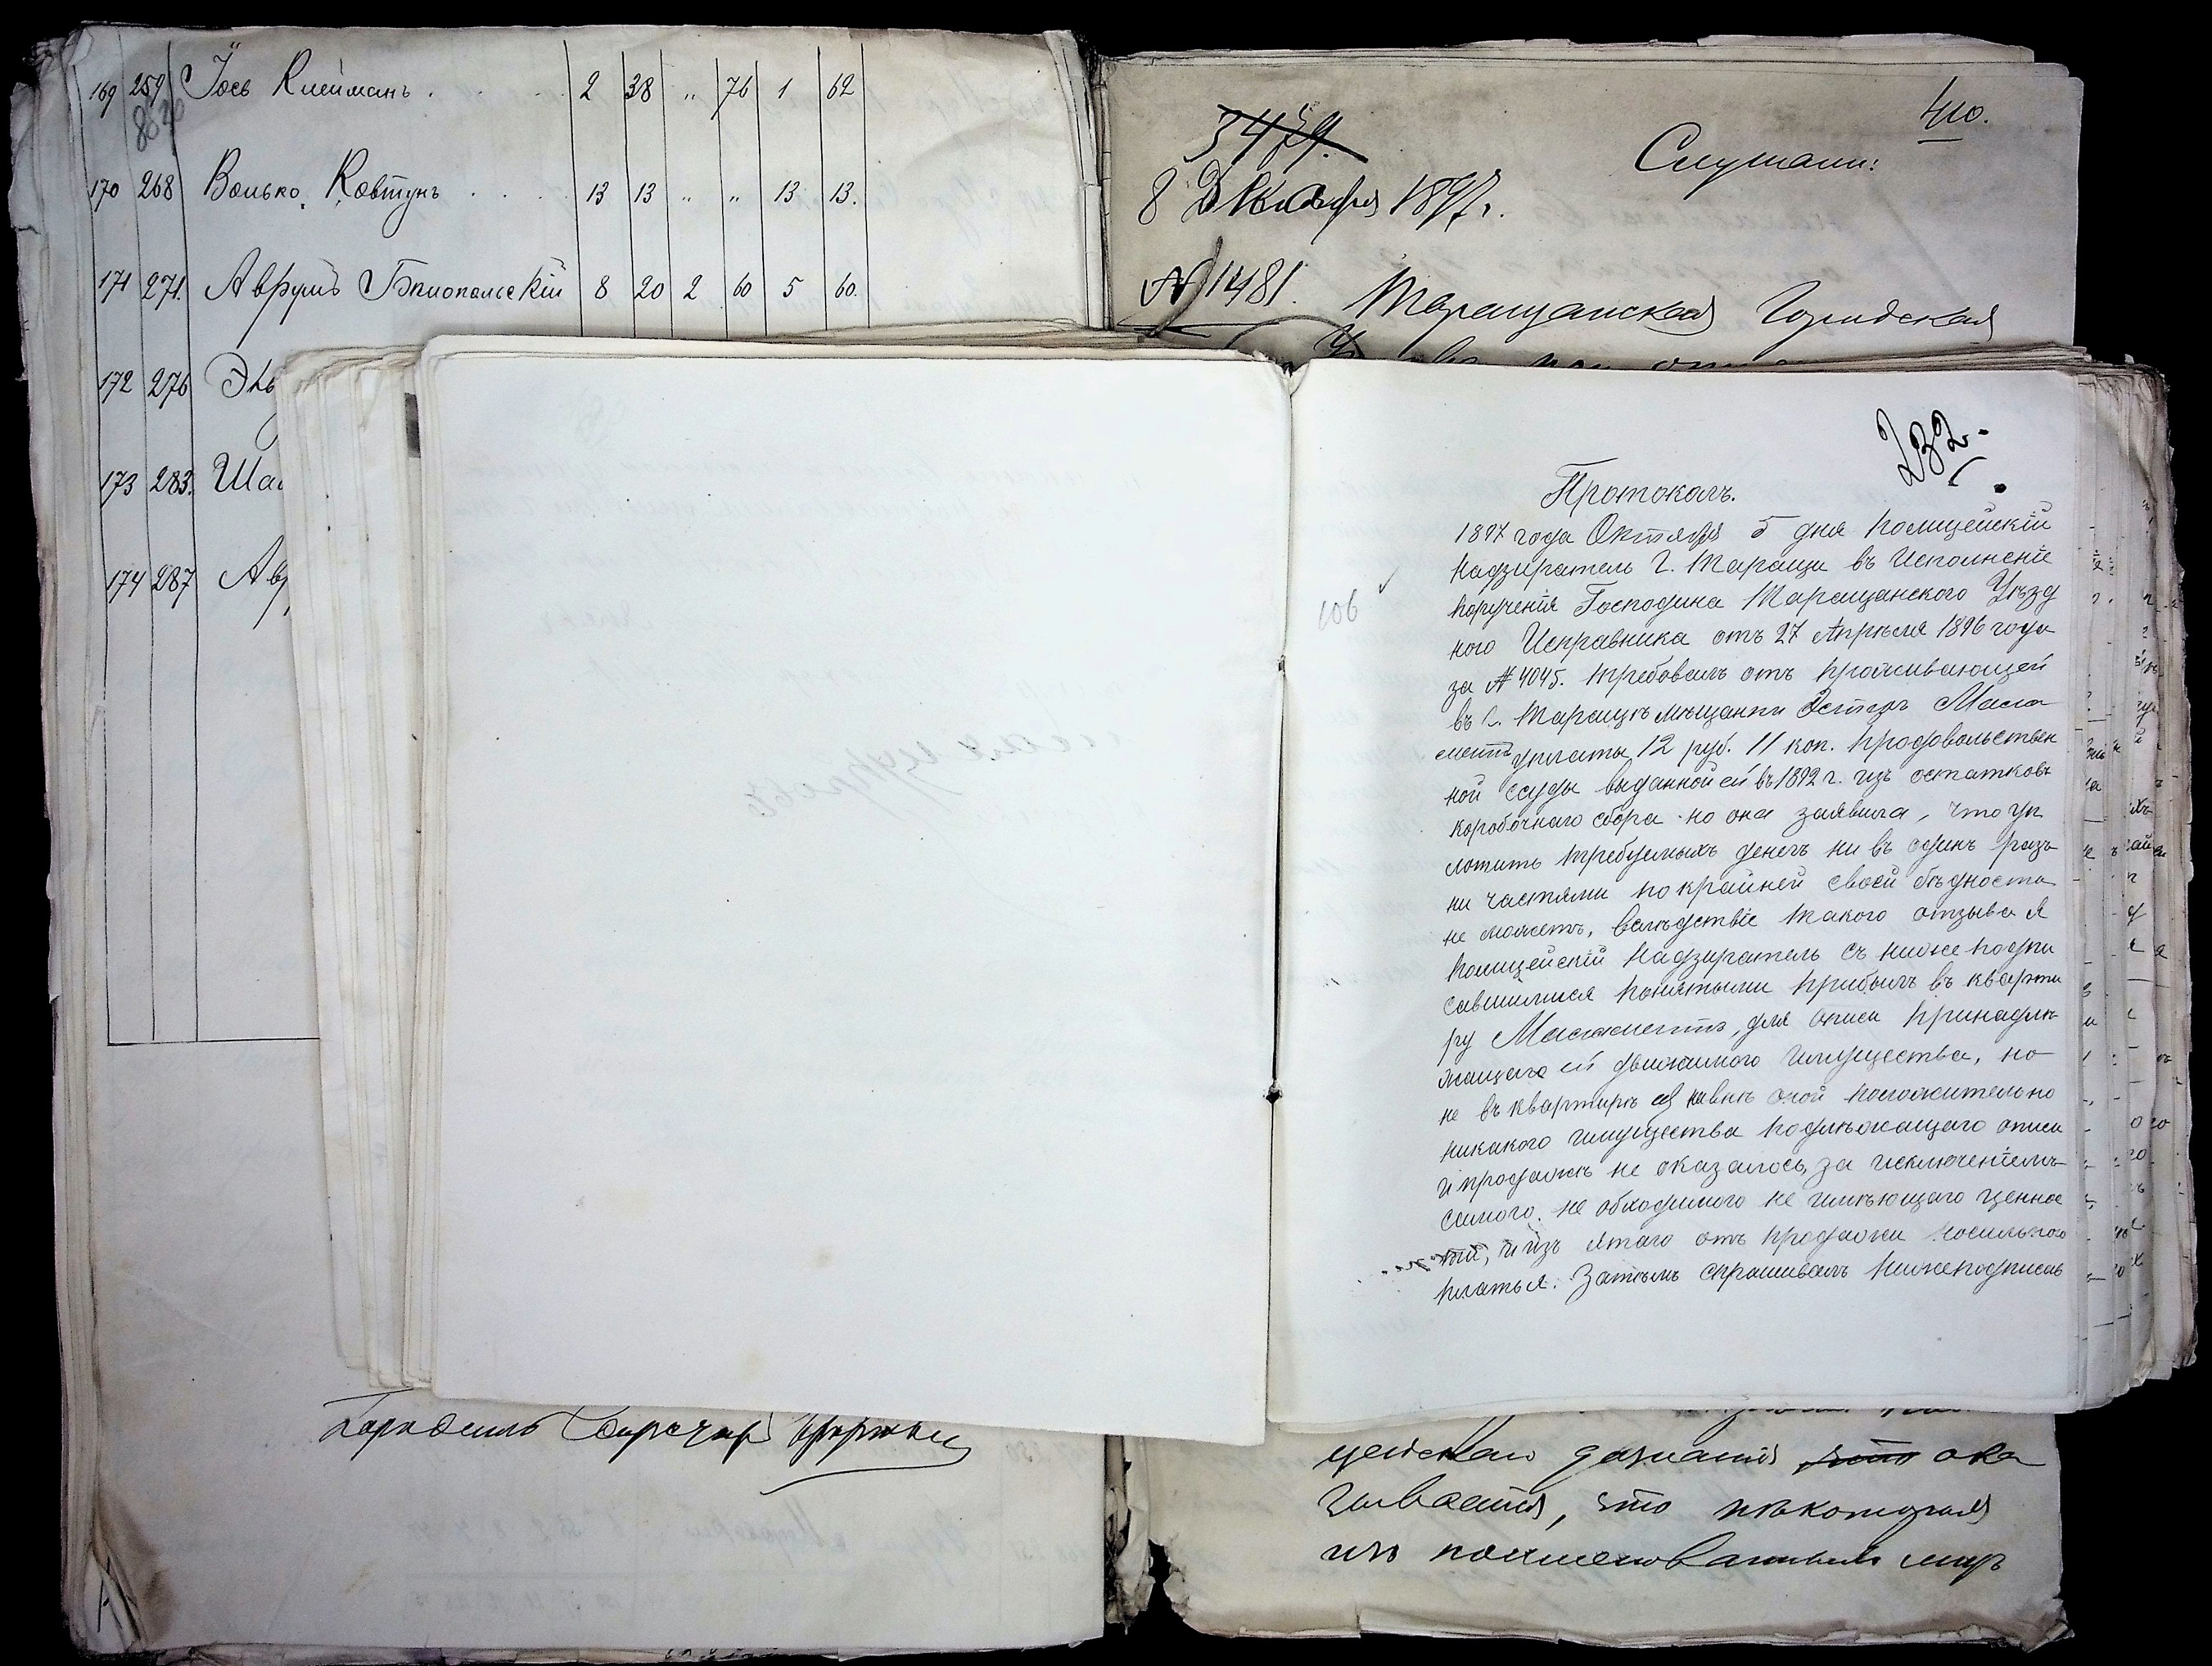 169 259 Іось Клейманъ . . . 2 38 „ 76 1 62
170 268 Волько Ковтунъ . . . 13 13 „ „ 13 13.
171 271. Аврумъ Бялопольскій 8 20 2 60 5 60.
172 276
173 283.
174 287
410.
Слушали:
8 Декабря 1897 г.
№ 1481.
Таращанская Городская
232.
Протоколъ.
1897 года Октября 5 дня Полицейскій
Надзиратель Г. Таращи въ исполненіе
порученія Господина Таращанского Уѣзд
ного Исправника отъ 27 Апрѣля 1896 года
за № 4045. требовалъ отъ проживающей
въ Г. Таращѣ мѣщанки Эстеръ
уплаты 12 руб. 11 коп. продовольствен
ной ссуды выданной ей въ 1892 г. изъ остатковъ
коробочнаго сбора но она заявила, что уп
лотить требуемыхъ денегъ ни въ одинъ разъ
ни частями по крайней своей бѣдности
не можетъ, вслѣдствіе такого отзыва я
Полицейскій Надзиратель съ ниже подпи
савшимися понятыми прибылъ въ кварти
ру для описи принадлѣ
жащаго ей движимого имущества, но
не въ квартирѣ ея внѣ оной положительно
никакого имущества подлѣжащаго описи
и продажѣ не оказалось, за исключеніемъ
самого не обходимого не имѣющаго ценно
сти, и изъ ятаго отъ продажи носильного
платья. Затѣмъ спрашивалъ нижеподписав
106
дознанія ока
зывается, что нѣкоторыя
изъ поименованныхъ лицъ